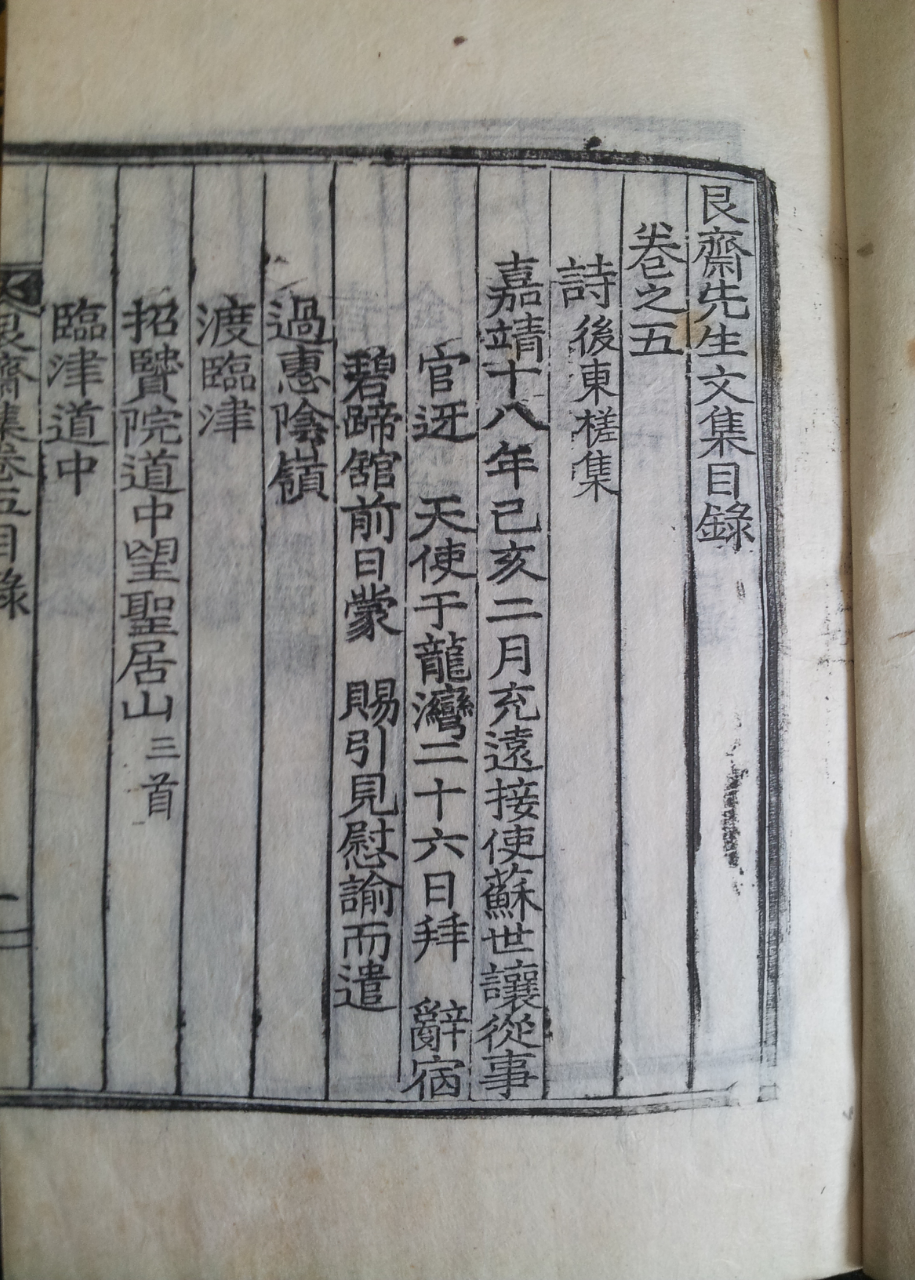 艮齋先生文集目錄
卷之五
詩 後東槎集
嘉靖十八年己亥二月充遠接使蘇世讓從事
官迓 天使于龍灣二十六日拜 辭宿
碧蹄舘前日蒙 賜引見慰諭而遣
過惠陰嶺
渡臨津
招賢院道中望聖居山 三首
臨津道中
艮齋集卷五目錄
一